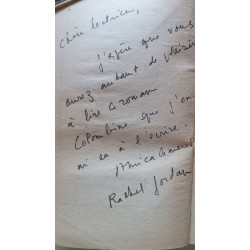 Chère lectrice,
J'espère que vous
aurez autant de plaisir
à lire ce roman
Colombine que j'en
ai eu à l'écrire.
Amicalement
Rachel Jordan